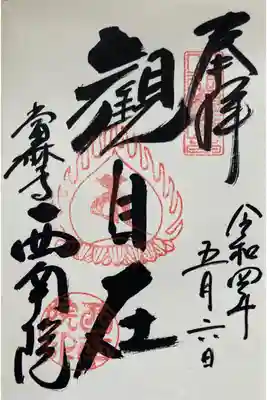 奉拝
令和四年
五月六日
観自在
當麻寺
西南院